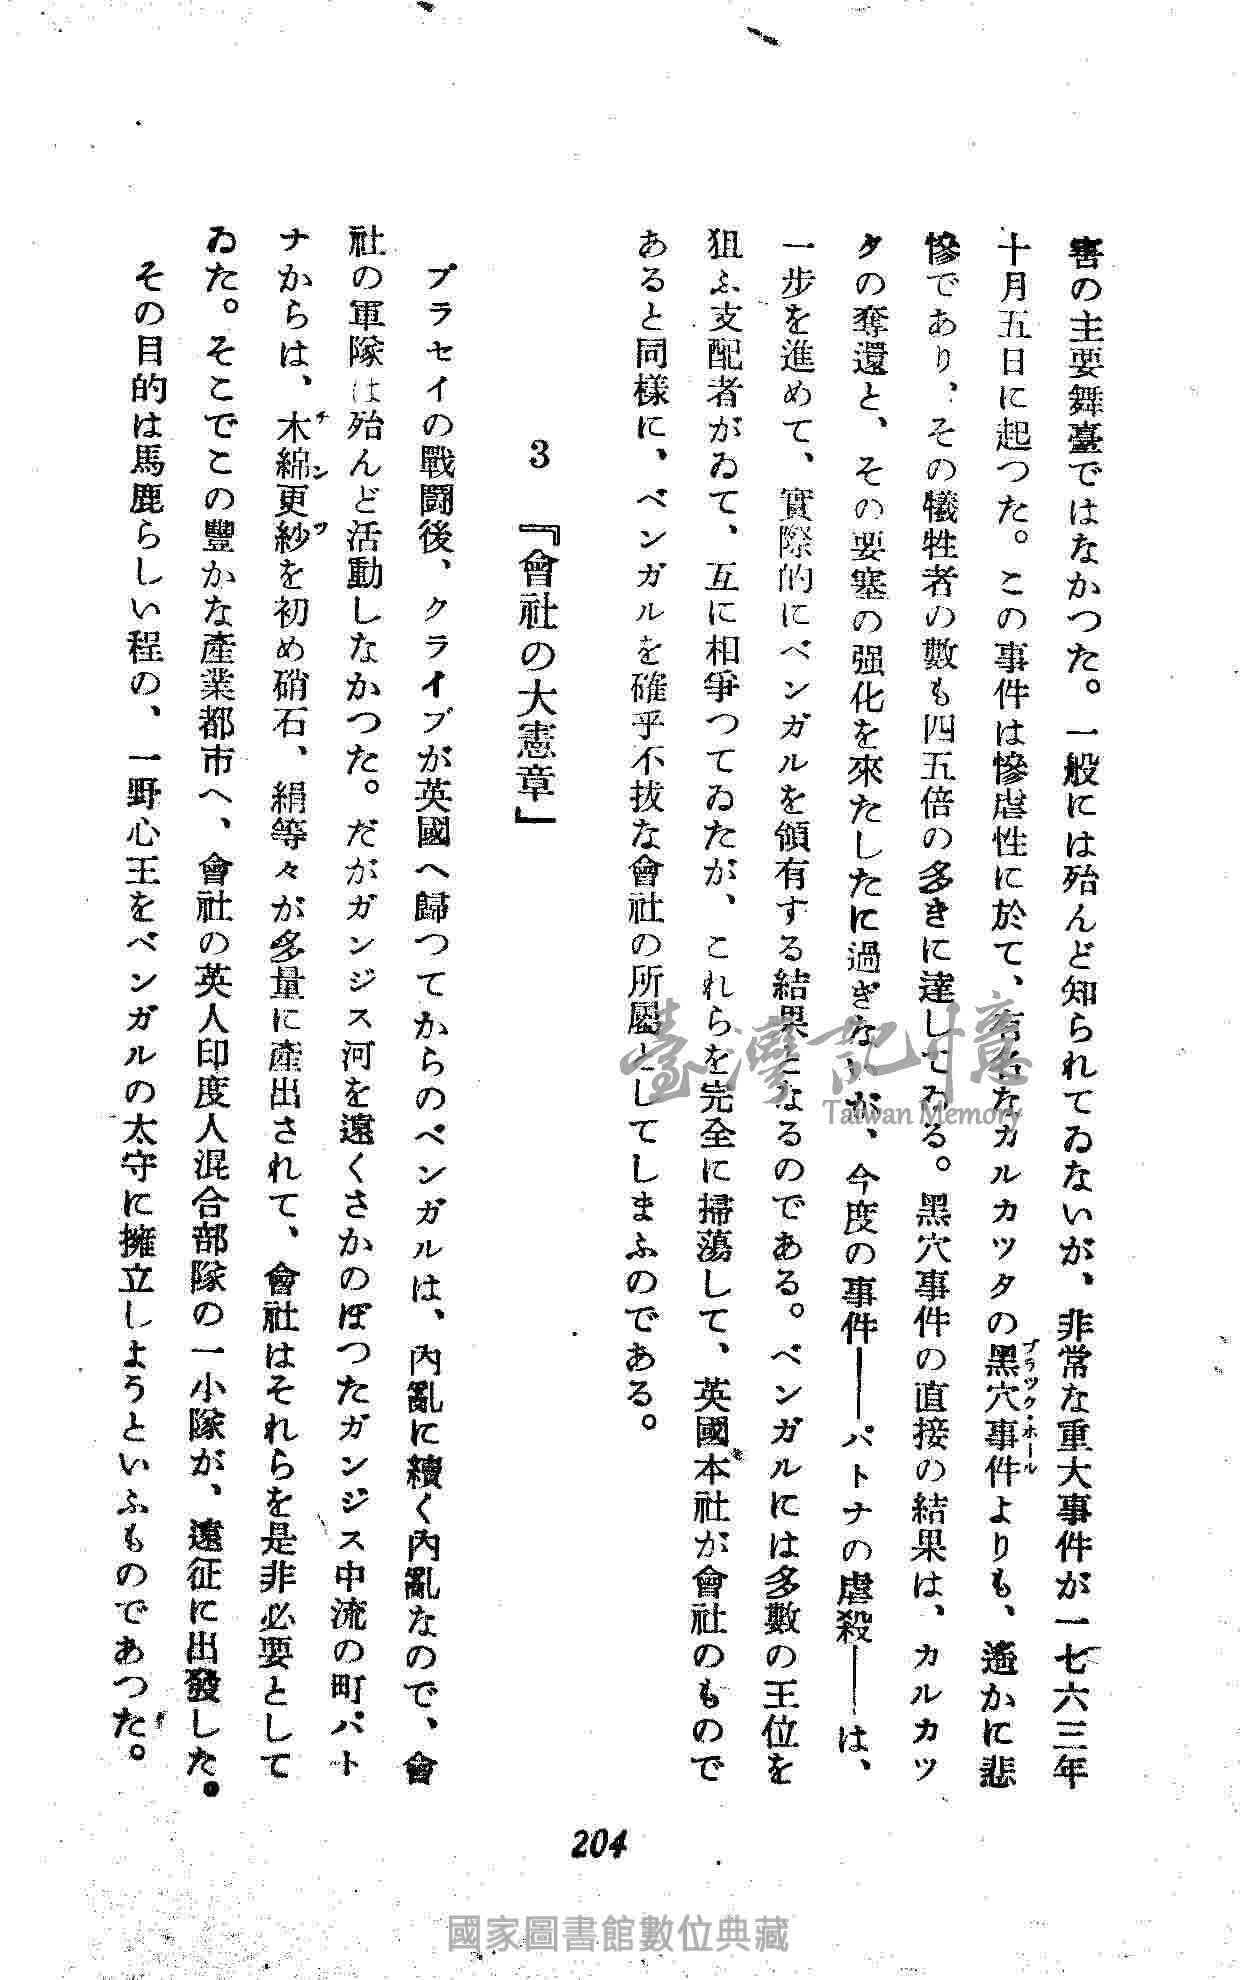 害の主要舞臺ではなかつた。一般には殆んど知られてゐないが、非常な重大事件が一七六三年
十月五日に起つた。この事件は慘虐性に於て、有名なカルカツタの黑穴事件よりも、遙かに悲
ブラツク・ホール
慘であり、その犧牲者の數も四五倍の多きに達してゐる。黑穴事件の直接の結果は、カルカツ
タの奪還と、その要塞の强化を來たしたに過ぎないが、今度の事件——パトナの虐殺——は、
一步を進めて、實際的にベンガルを領有する結果となるのである。ベンガルには多數の王位を
狙ふ支配者がゐて、互に相爭つてゐたが、これらを完全に掃蕩して、英國本社が會社のもので
あると同樣に、ベンガルを確乎不拔な會社の所屬としてしまふのである。
3 『會社の大憲章』
プラセイの戰鬪後、クライブが英國へ歸つてからのベンガルは、內亂に續く內亂なので、會
社の軍隊は殆んど活動しなかつた。だがガンジス河を遠くさかのぼつたガンジス中流の町パト
ナからは、木綿更紗を初め硝石、絹等々が多量に產出されて、會社はそれらを是非必要として
チンツ
ゐた。そこでこの豐かな產業都市へ、會社の英人印度人混合部隊の一小隊が、遠征に出發した。
その目的は馬鹿らしい程の、一野心王をベンガルの太守に擁立しようといふものであつた。
204
臺灣記憶
Taiwan Memory
國家圖書館數位典藏